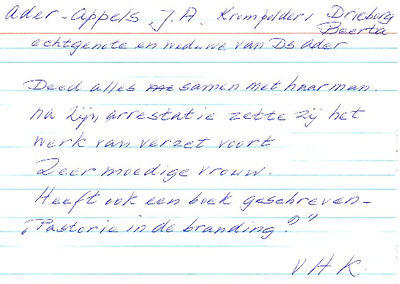 Ader-Appels, J.A. Krompolder 1 Drieborg
Beerta
echtgenote en weduwe van Ds Ader
Deed alles samen met haar man.
na zijn arrestatie zette zij het
werk van verzet voort
Zeer moedige vrouw.
Heeft ook een boek geschreven-
"Pastorie in de branding?"
V H K.